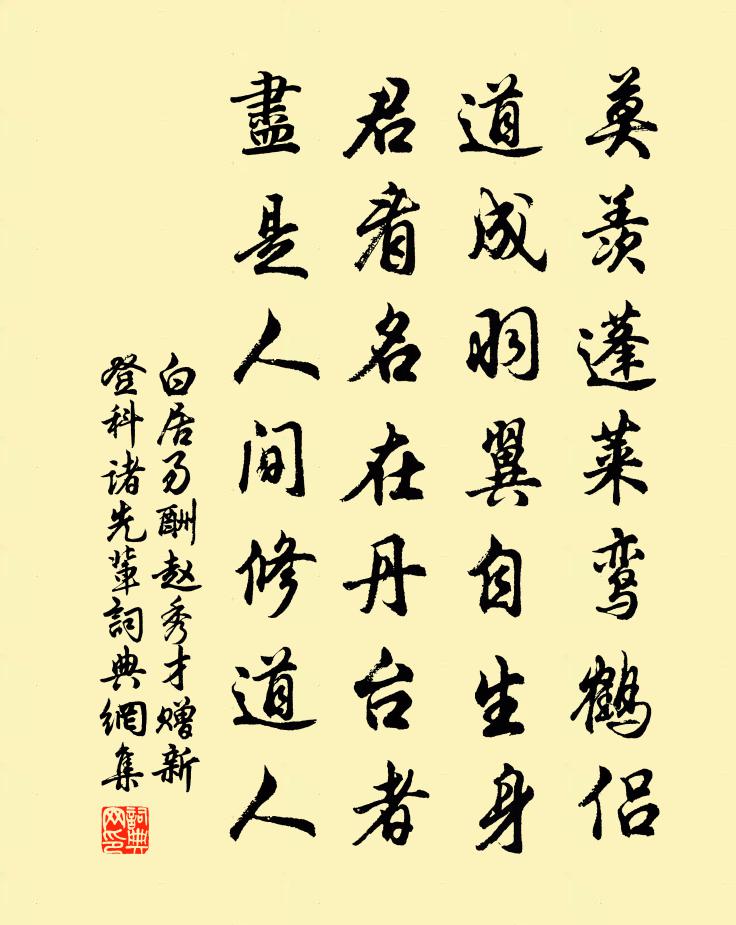 莫羡蓬莱鸾鹤侣
道成羽翼自生身
君看名在丹台者
盡是人间修道人
白居易酬赵秀才赠新
登科诸先輩詞典網集
詞典网印